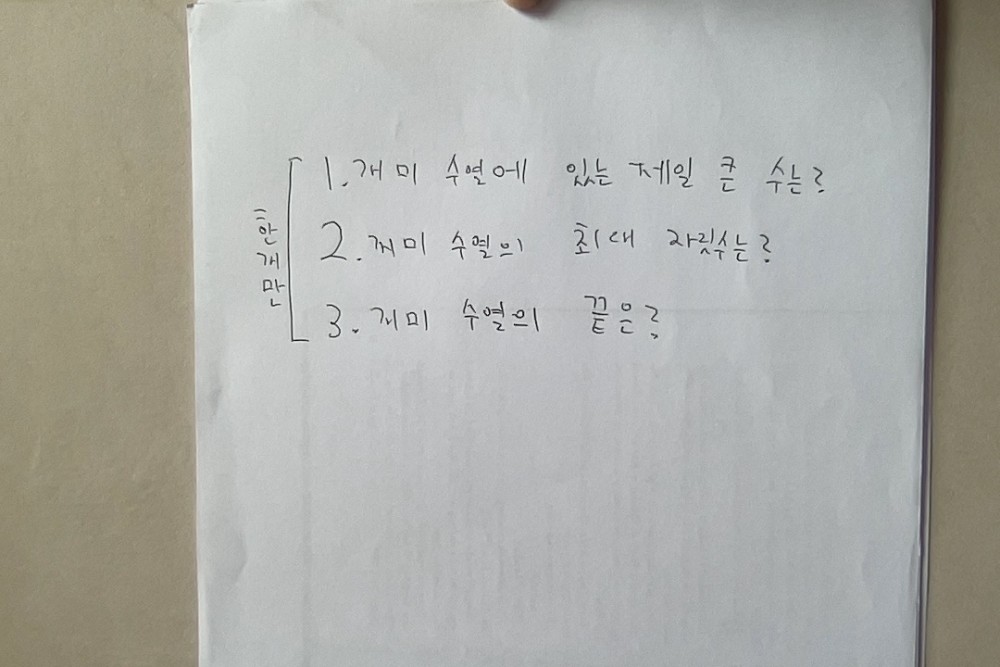 한개만
1. 개미 수열에 있는 제일 큰 수는?
2. 개미 수열의 최대 자릿수는?
3. 개미 수열의 끝은?